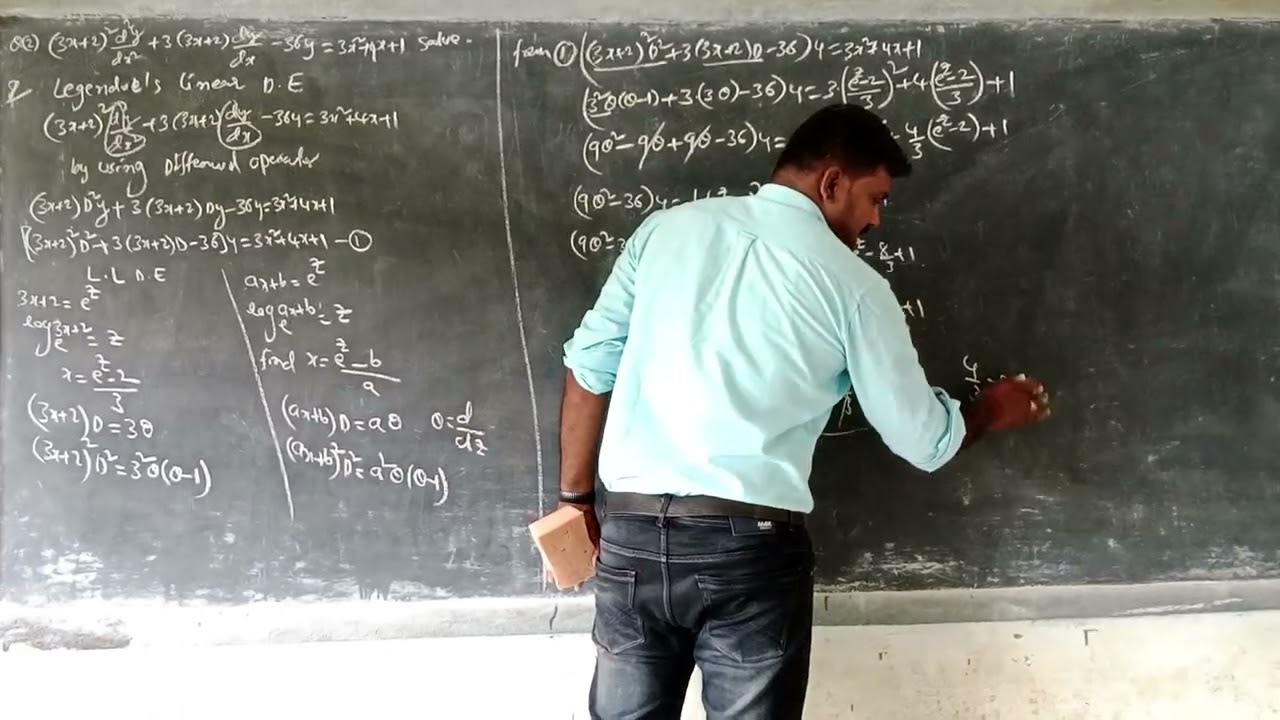 Q(2) (3x+2)² d²y/dx² + 3(3x+2) dy/dx - 36y = 3x²+4x+1 solve.
Legendre's linear D.E
(3x+2)² d²y/dx² + 3(3x+2) dy/dx - 36y = 3x²+4x+1
by using Differential operator
(3x+2)² D²y + 3(3x+2) Dy - 36y = 3x²+4x+1
((3x+2)² D² + 3(3x+2) D - 36) y = 3x²+4x+1 - ①
L.L D.E
3x+2 = e^z
log_e 3x+2 = z
x = (e^z - 2)/3
(3x+2) D = 3θ
(3x+2)² D² = 3² θ(θ-1)
ax+b = e^z
log_e ax+b = z
find x = (e^z - b)/a
(ax+b) D = aθ θ = d/dz
(ax+b)² D² = a² θ(θ-1)
from ① ((3x+2)² D² + 3(3x+2) D - 36) y = 3x²+4x+1
(3² θ(θ-1) + 3(3θ) - 36) y = 3·((e^z - 2)/3)² + 4((e^z - 2)/3) + 1
(9θ² - 9θ + 9θ - 36) y = 4/3 (e^z - 2) + 1
(9θ² - 36) y =
(9θ² - 8/3 + 1
+1
4